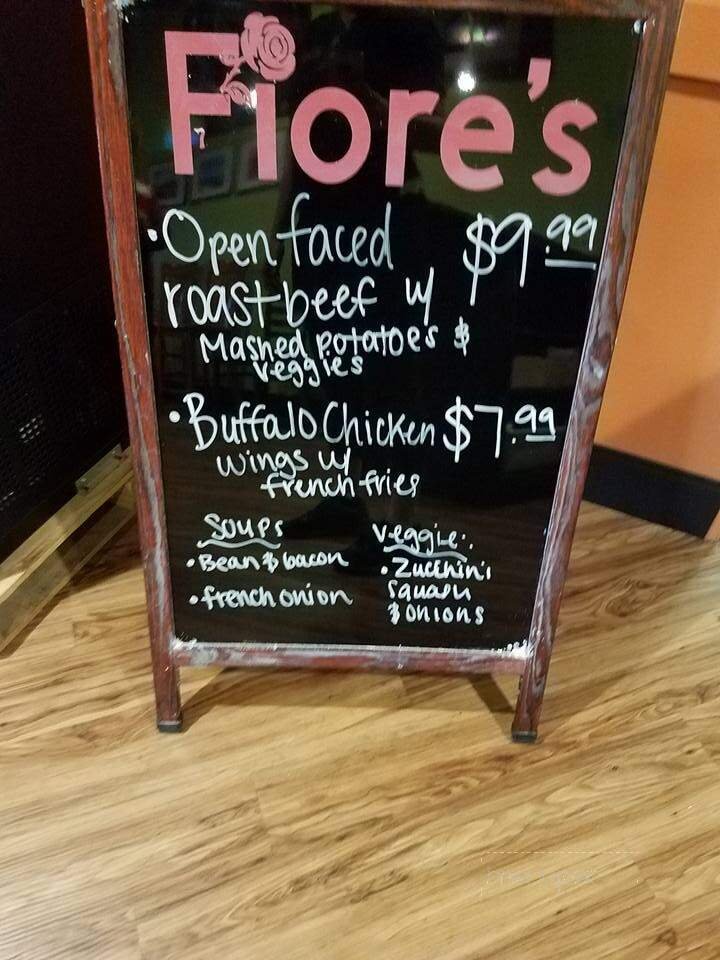 Fiore's
• Open faced $9.99
roast beef w/
Mashed potatoes &
veggies
• Buffalo Chicken $7.99
wings w/
french fries
Soups
• Bean & bacon
• french onion
Veggie:
• Zucchini
squash
& onions